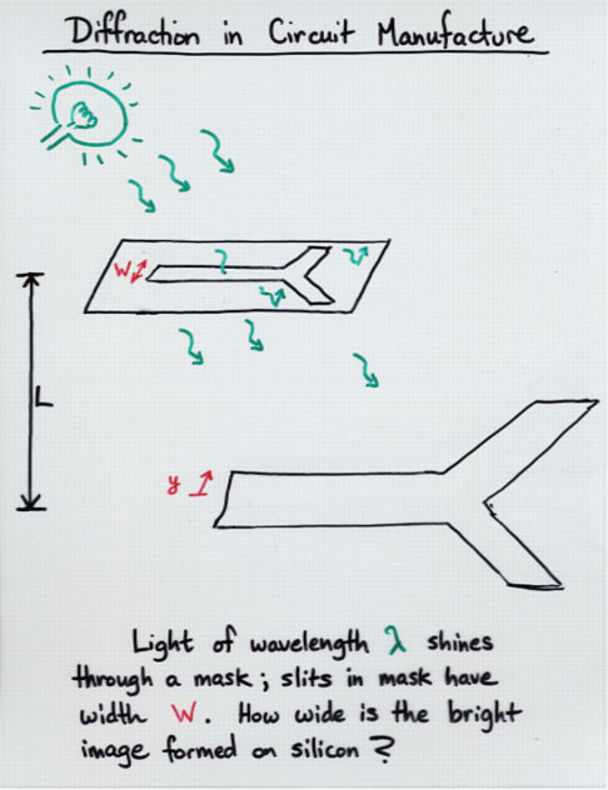 Diffraction in Circuit Manufacture
W
L
y
Light of wavelength λ shines
through a mask; slits in mask have
width W. How wide is the bright
image formed on silicon?